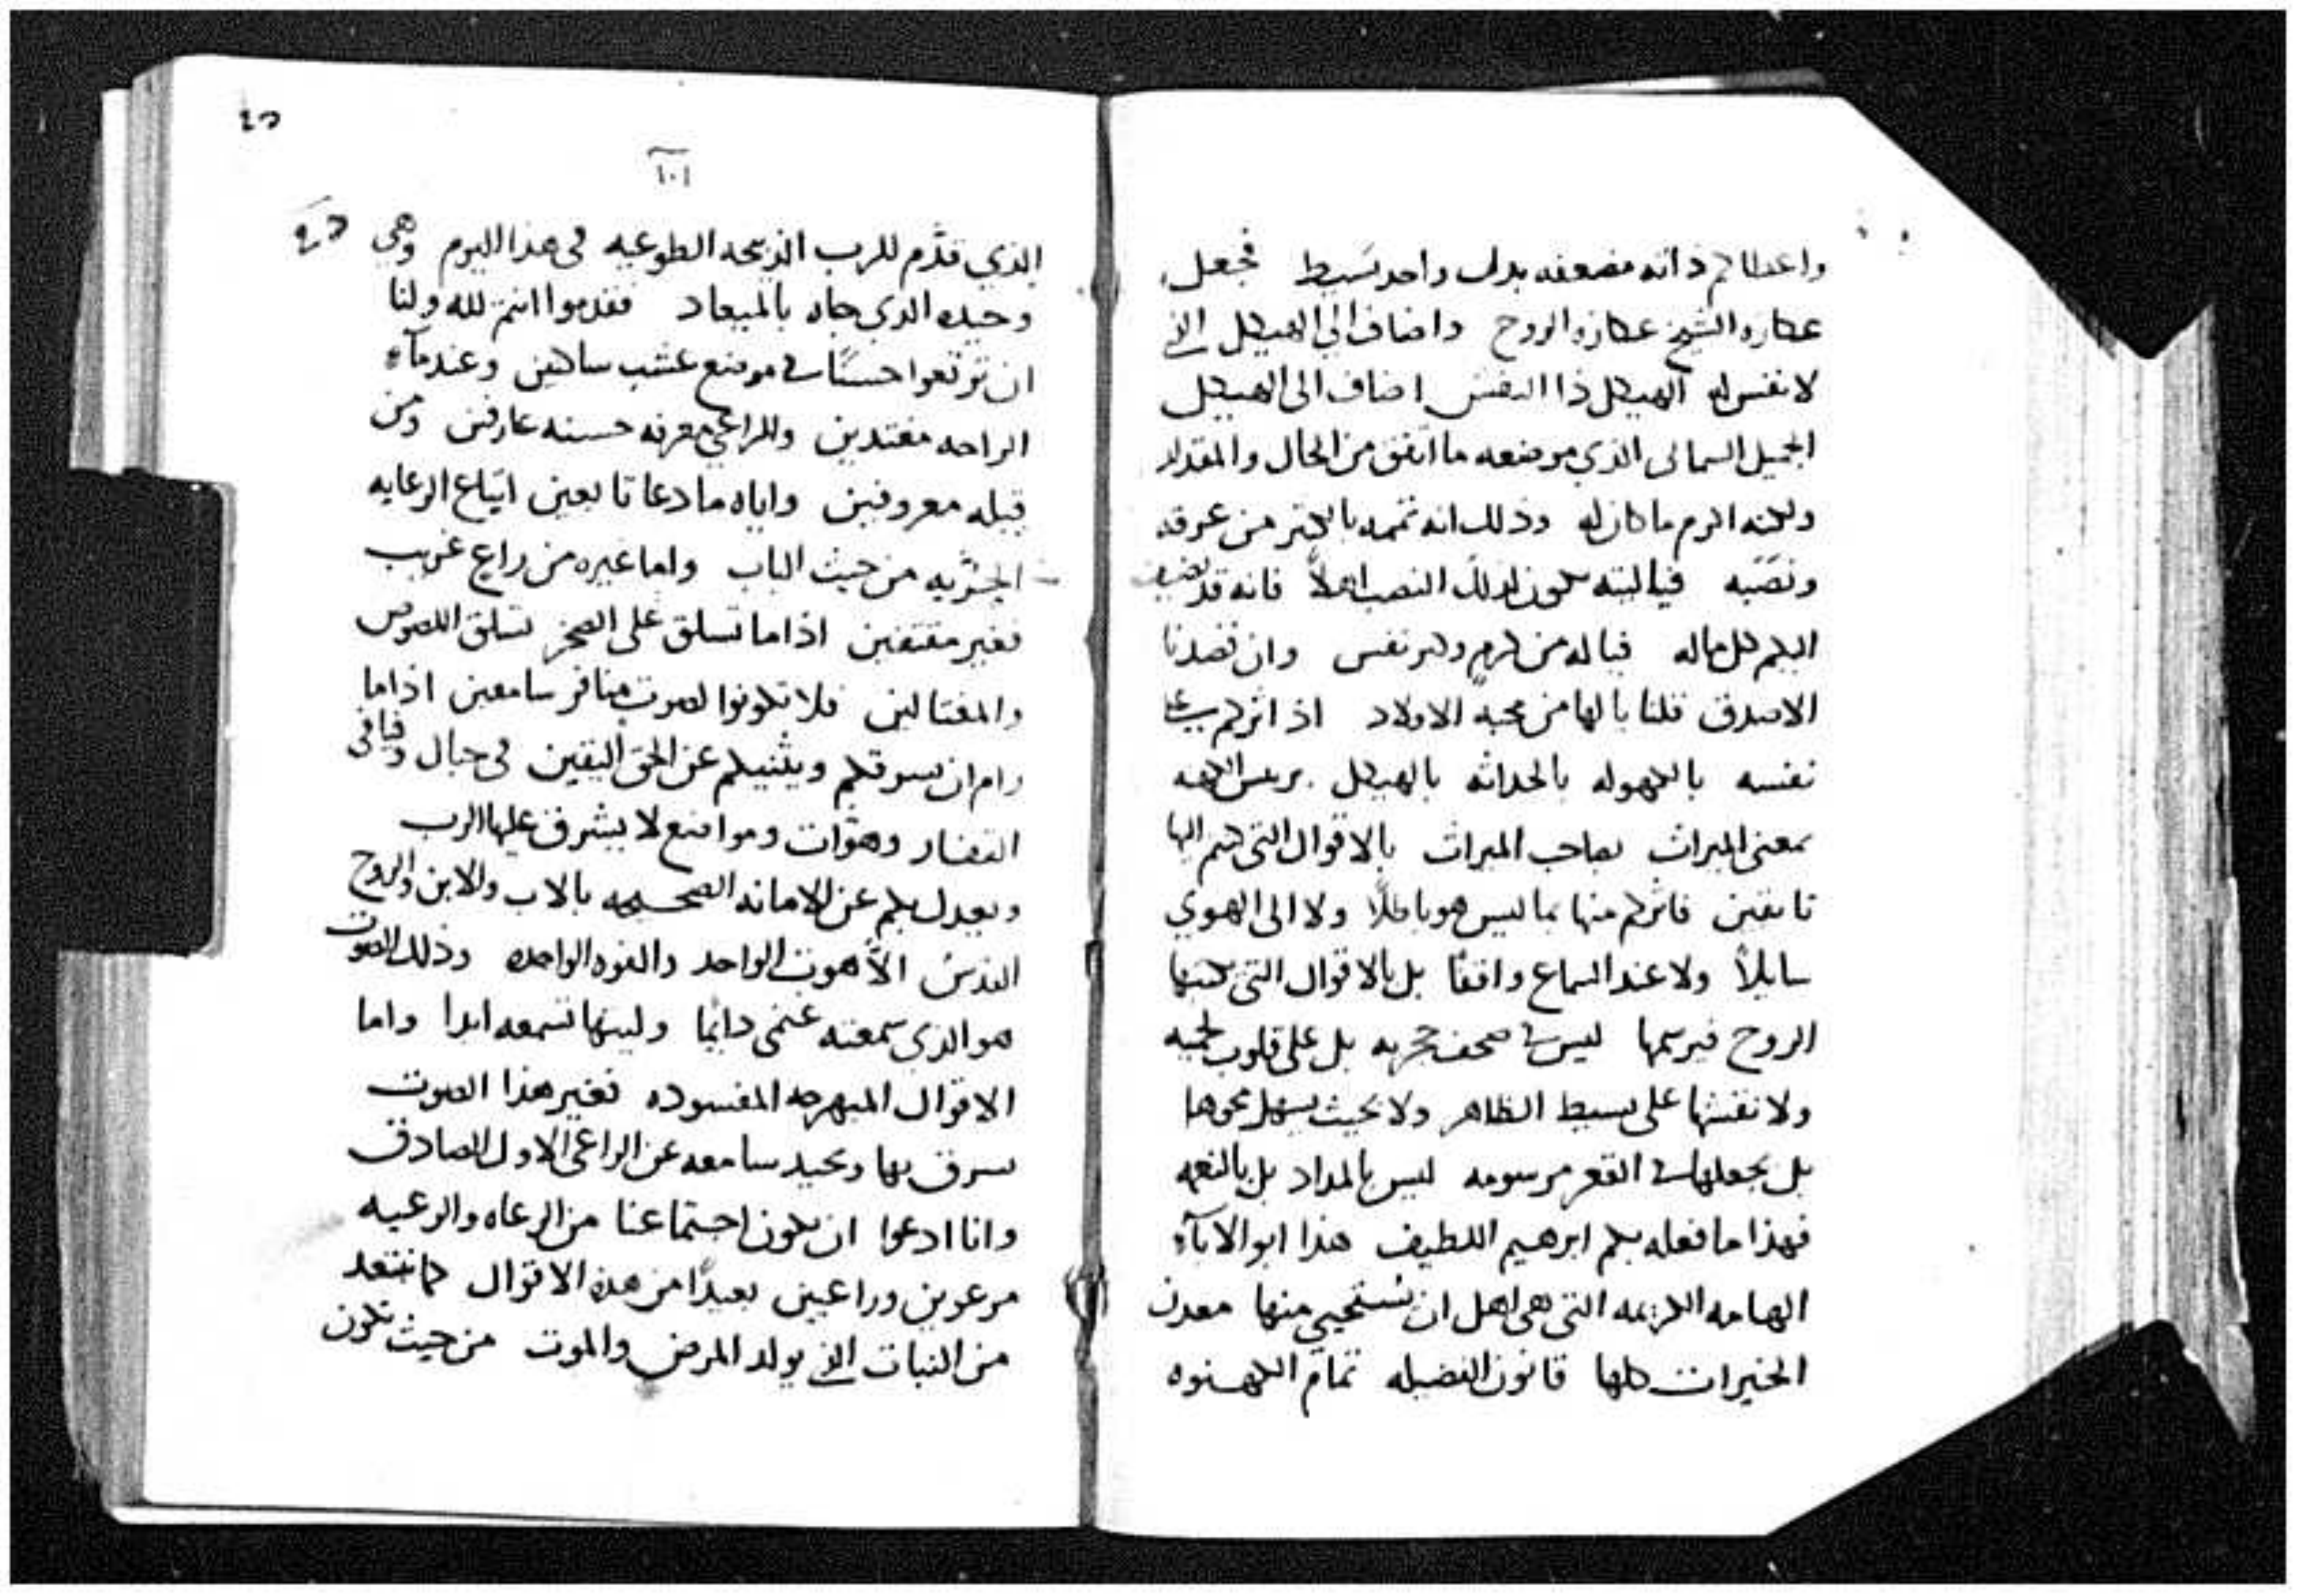 واعطاكم ذاته مضعفه بدل واحد بسيط فجعل
عكازه الشيخ عكازه الروح واضاف الي الهيكل الذي
لا نفس له الهيكل ذا النفس اضاف الى الهيكل
الجميل السمائى الذي موضعه ما اتفق من الحال والمقدار
ولكنه اكرم ما كان له وذلك انه تممه باكثر من عرقه
ونصبه فياليته يكون لذلك النصب اهلاً فانه قد
اليكم كل ماله فياله من كرم وكبر نفس وان قصدنا
الاصدق قلنا يا لها من محبه الاولاد اذ اثركم
نفسه بالكهوله بالحداثه بالهيكل
بمعنى الميراث بصاحب الميراث بالاقوال التى كنتم اليها
تايقين فاثركم منها بما ليس هو باطلاً ولا الى الهوي
سايلاً ولا عند السماع واقفًا بل بالاقوال التى يكتبها
الروح فيرسمها ليس في صحف حجريه بل على قلوب لحميه
ولا نقشها على بسيط الظاهر ولا بحيث يسهل محوها
بل يجعلها في القعر مرسومه ليس بالمداد بل بالنعمه
فهذا ما فعله بكم ابرهيم اللطيف هذا ابو الاباء
الهامه الكريمه التى هى اهل ان نستحيي منها معدن
الخيرات كلها قانون الفضيله تمام الكهنوه
٤٥
١٠١
الذي قدَّم للرب الذبيحه الطوعيه فى هذا اليوم وهي
وحيده الذي جاه بالميعاد فقدموا انتم لله ولنا
ان ترتعوا حسنًا في موضع عشب ساكنين وعند ماء
الراحه مغتدين وللراعي معرفه حسنه عارفين ومن
قبله معروفين واياه ما دعا تابعين اتباع الرعايه
الحريه من حيث الباب واما غيره من راعٍ غريب
فغير مقتفين اذا ما تسلق على الصخر تسلق اللصوص
والمغتالين فلا تكونوا لصوت منافر سامعين اذا ما
رام ان يسرقكم ويثنيكم عن الحق اليقين فى جبال وفيافى
القفار وهوّات ومواضع لا يشرف عليها الرب
ويعدل بكم عن الامانه الصحيحه بالاب والابن والروح
القدس اللاهوت الواحد والقوه الواحده وذلك الصوت
هو الذي سمعته غنمى دايمًا وليتها تسمعه ابدا واما
الاقوال المبهرجه المفسوده فغير هذا الصوت
يسرق بها ويحيد سامعه عن الراعى الاول الصادق
وانا ادعوا ان يكون اجتماعنا من الرعاه والرعيه
مرعوين وراعيين بعيدًا من هذه الاقوال كما نبتعد
من النبات الذي يولد المرض والموت من حيث نكون